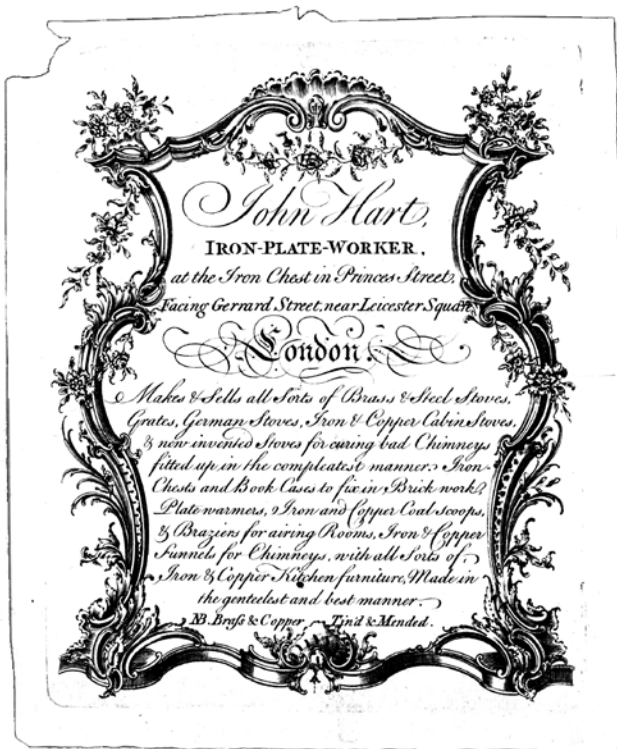 John Hart,
IRON-PLATE-WORKER,
at the Iron Chest in Princes Street,
Facing Gerrard Street, near Leicester Square
London.
Makes & Sells all Sorts of Brass & Steel Stoves,
Grates, German Stoves, Iron & Copper Cabin Stoves,
& new invented Stoves for curing bad Chimneys
fitted up in the compleatest manner. Iron-
Chests and Book Cases to fix in Brick work,
Plate warmers, Iron and Copper Coal Scoops,
& Braziers for airing Rooms, Iron & Copper
Funnels for Chimneys, with all Sorts of
Iron & Copper Kitchen furniture, Made in
the genteelest and best manner.
NB. Braſs & Copper Tin'd & Mended.